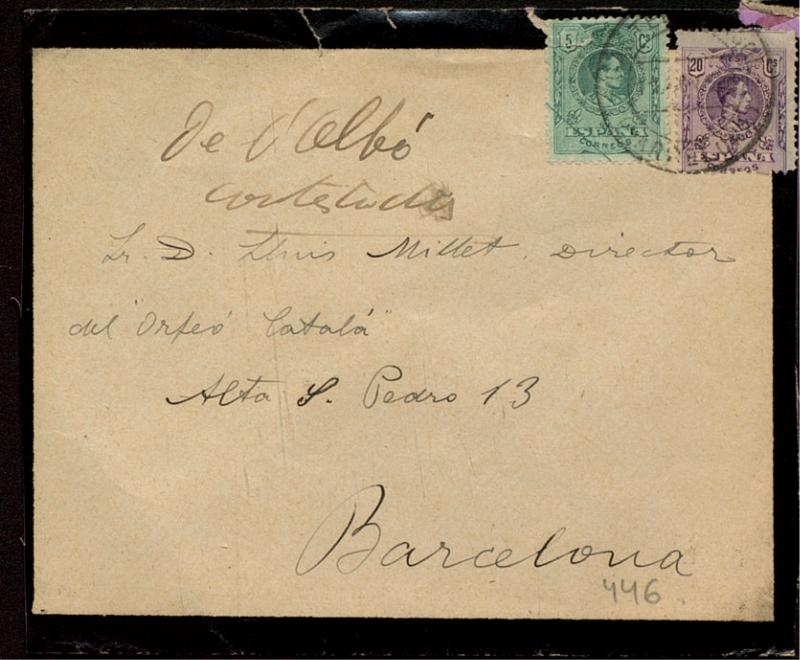 5 Cs
ESPAÑA
CORREOS
20 Cs
ESPAÑA
CORREOS
De l'Albó
contestada
Sr. D. Lluis Millet. Director
del "Orfeó Catalá"
Alta S. Pedro 13
Barcelona
446.